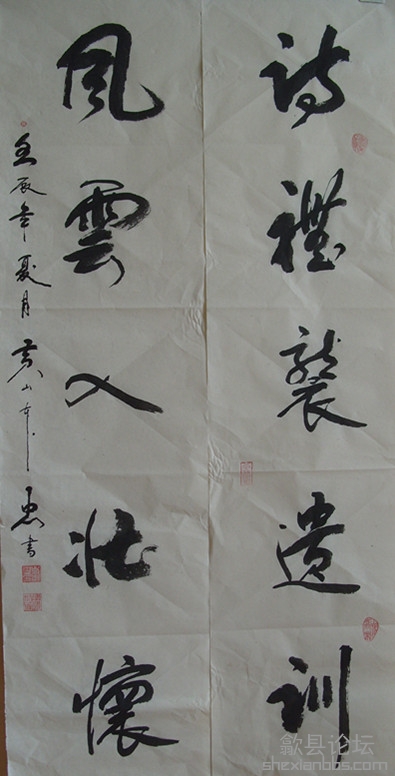 詩禮襲遺訓
風雲入壯懷
壬辰年夏月黄山
書
歙县论坛
shexianbbs.com